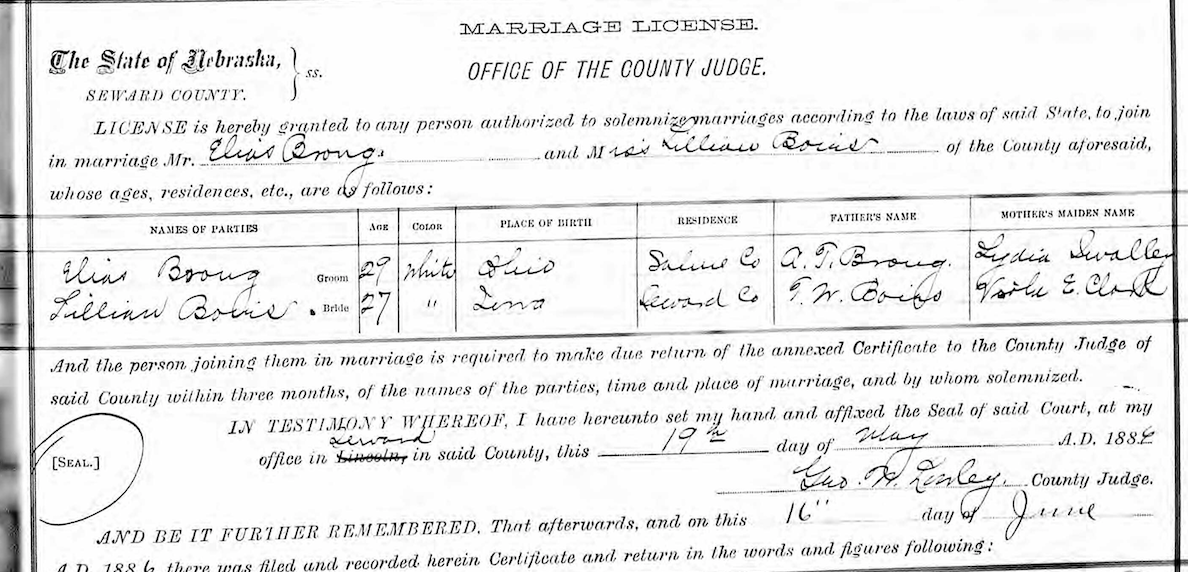 MARRIAGE LICENSE.
The State of Nebraska, } ss.
OFFICE OF THE COUNTY JUDGE.
SEWARD COUNTY.
LICENSE is hereby granted to any person authorized to solemnize marriages according to the laws of said State, to join
in marriage Mr. Elias Broug and Miss Lillian of the County aforesaid,
whose ages, residences, etc., are as follows:
NAMES OF PARTIES AGE COLOR PLACE OF BIRTH RESIDENCE FATHER'S NAME MOTHER'S MAIDEN NAME
Elias Broug Groom 29 White Ohio Saline Co A. T. Broug. Lydia
Lillian Bride 27 " Seward Co T. W. E. Clark
And the person joining them in marriage is required to make due return of the annexed Certificate to the County Judge of
said County within three months, of the names of the parties, time and place of marriage, and by whom solemnized.
IN TESTIMONY WHEREOF, I have hereunto set my hand and affixed the Seal of said Court, at my
Seward
[SEAL.] office in Lincoln, in said County, this 19th day of May A.D. 1886
Geo. W. County Judge.
AND BE IT FURTHER REMEMBERED. That afterwards, and on this 16" day of June
A.D. 1886 there was filed and recorded herein Certificate and return in the words and figures following: